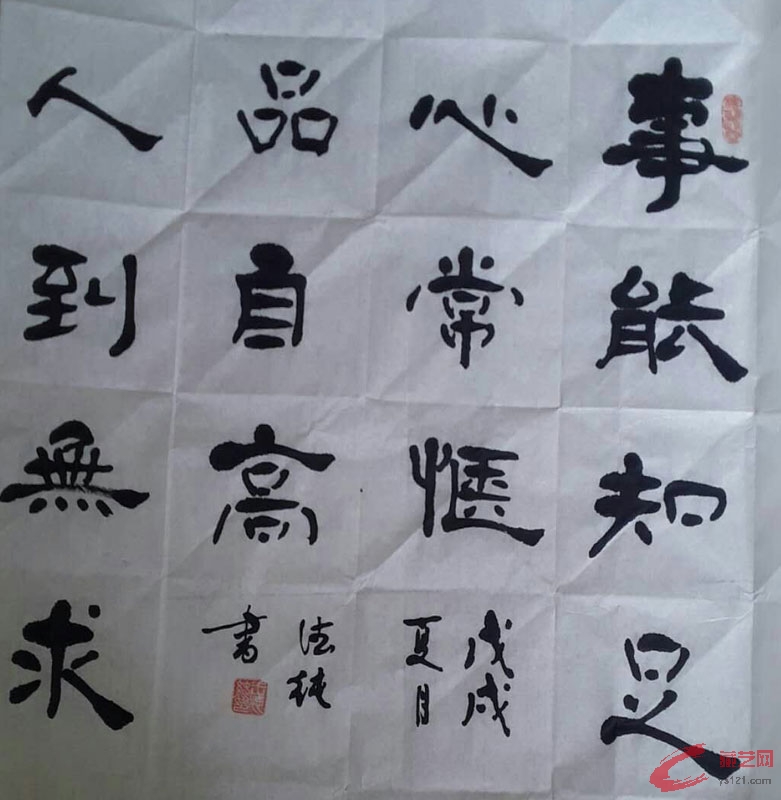 事能知足
心常愜
人到無求
品自高
戊戌
夏月
法
書
藏艺网
ys121.com